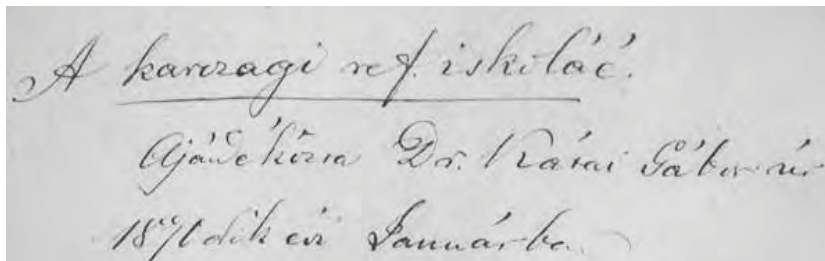 A karczagi ref. iskoláé.
Ajándékozta Dr. Kátai Gábor úr
1871dik évi Januárba